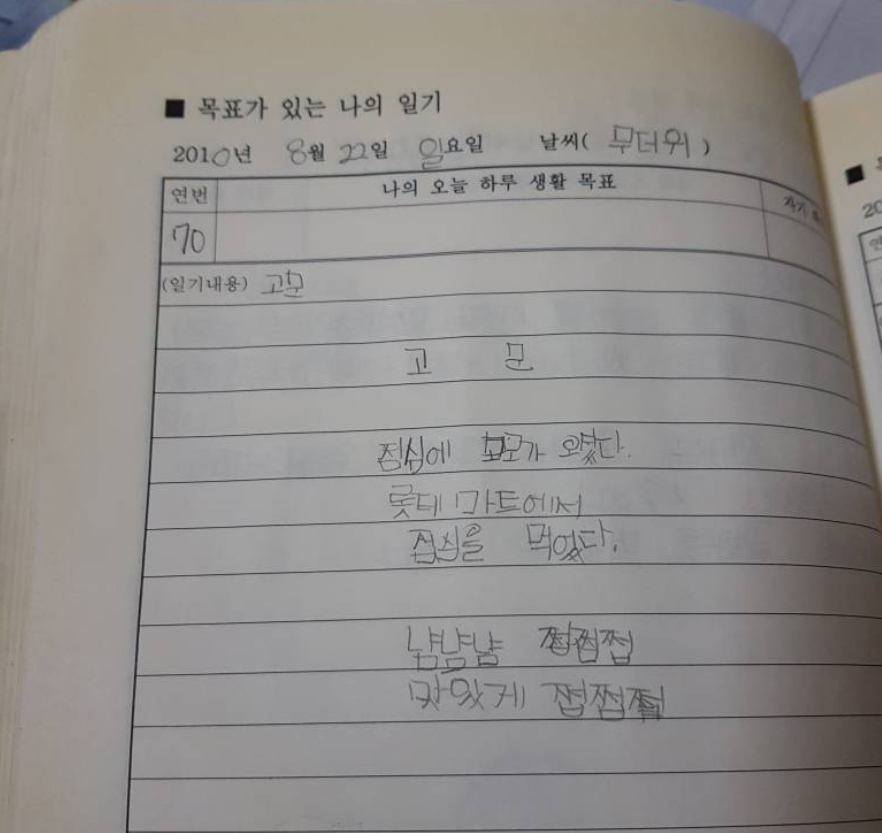 ■ 목표가 있는 나의 일기
2010년 8월 22일 일요일 날씨( 무더위 )
연번 나의 오늘 하루 생활 목표 자기
70
(일기내용) 고문
고 문
점심에 고모가 오셨다.
롯데 마트에서
점심을 먹었다.
냠냠냠 쩝쩝쩝
맛있게 쩝쩝쩝
■
20